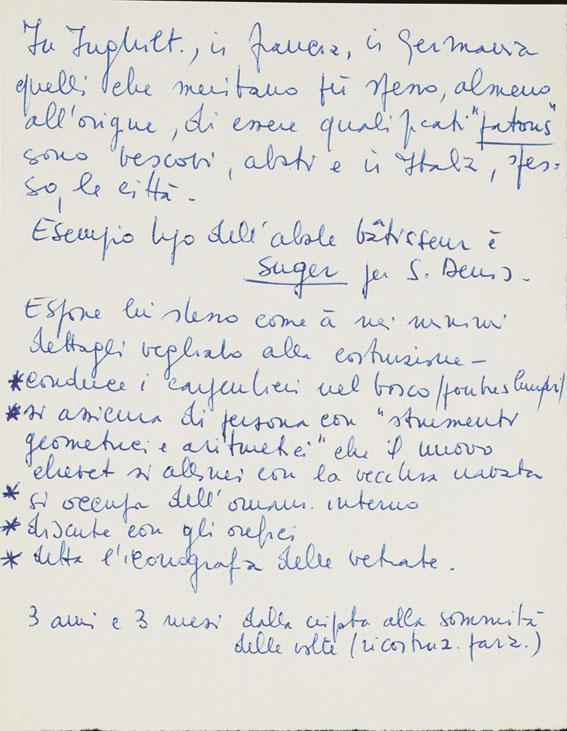 In Inghilt., in Francia, in Germania
quelli che meritano più spesso, almeno
all'origine, di essere qualificati "patrons"
sono vescovi, abati e in Italia, spes=
so, le città -
Esempio tipo dell'abate bâtisseur è
Suger per S. Denis -
Espone lui stesso come à nei minimi
dettagli vegliato alla costruzione -
* conduce i carpentieri nel bosco (poutres
* si assicura di persona con "strumenti
geometrici e aritmetici" che il nuovo
chevet si allinei con la vecchia navata
* si occupa dell'ornam. interno
* discute con gli orefici
* detta l'iconografia delle vetrate.
3 anni e 3 mesi dalla cripta alla sommità
delle volte (ricostruz. parz.)